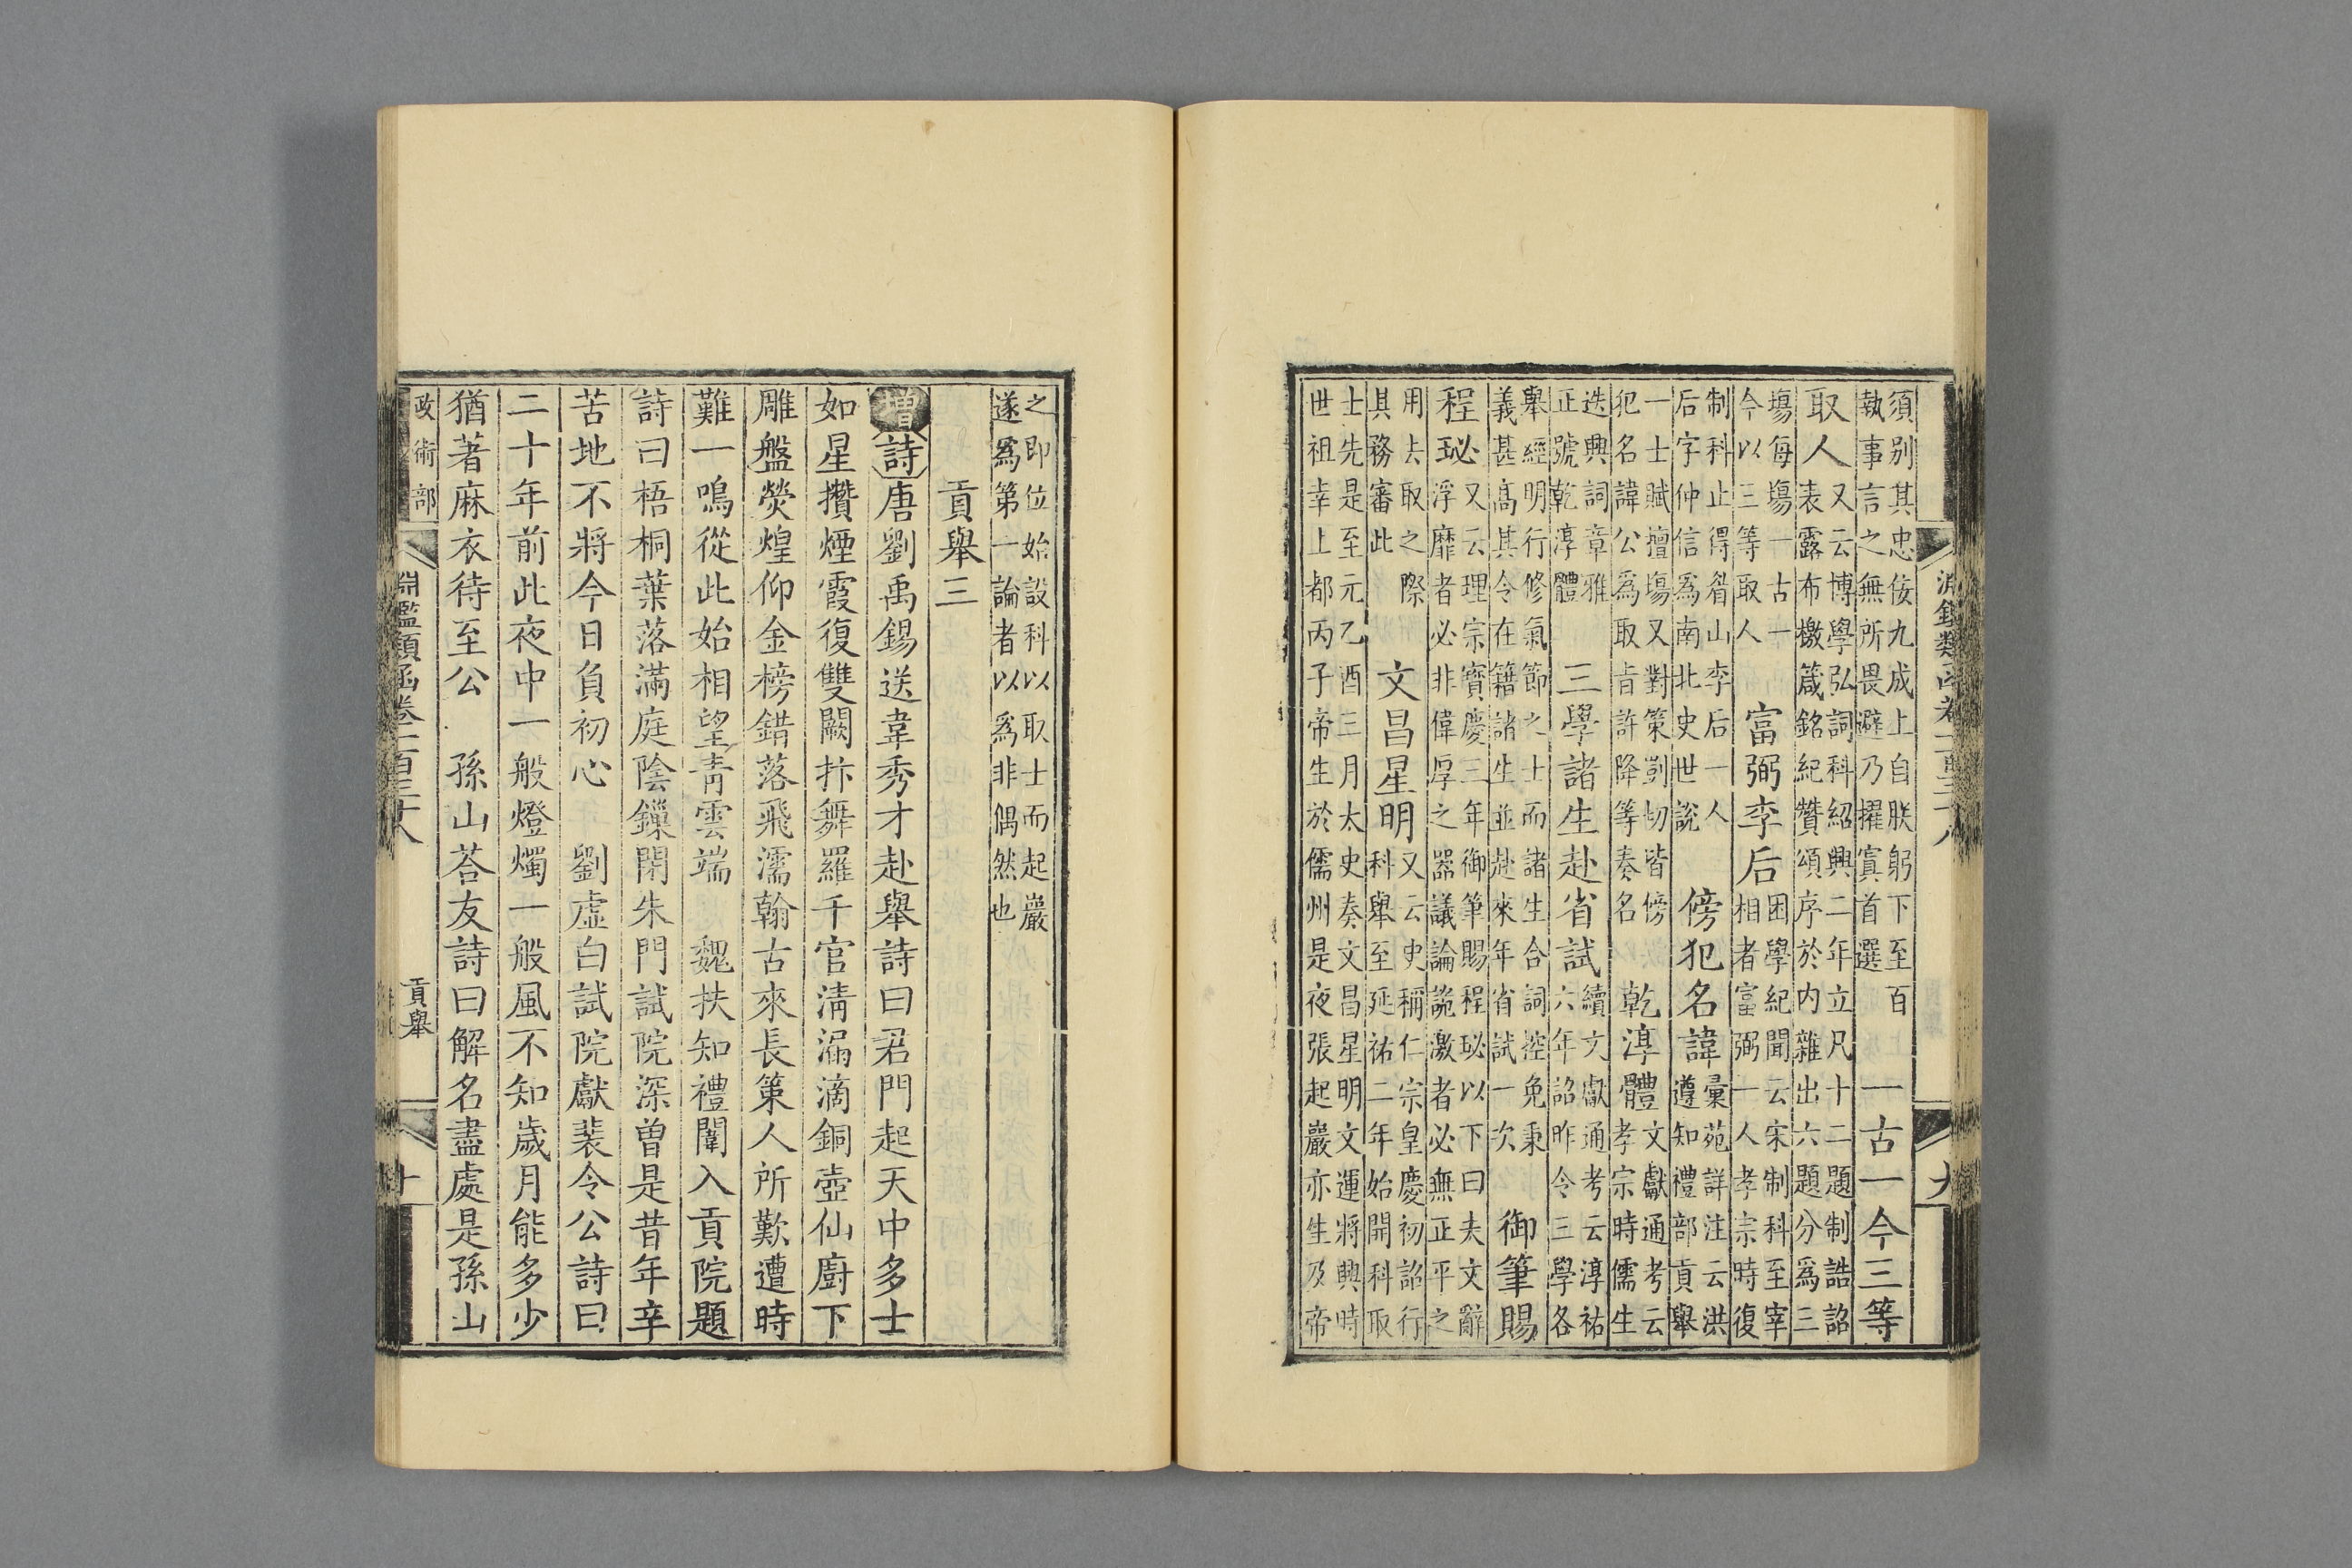 淵鑑類函卷一百三十八
須別其忠佞九成上自朕躬下至百執事言之無所畏避乃擢寘首選 一古一今三等
取人又云博學弘詞科紹興二年立凡十二題制誥詔表露布檄箴銘紀贊頌序於内雜出六題分爲三
塲每塲一古一今以三等取人 富弼李后困學紀聞云宋制科至宰相者富弼一人孝宗時復
制科止得眉山李后一人后字仲信爲南北史世説 傍犯名諱彙苑詳注云洪遵知禮部貢舉
一士賦擅塲又對策剴切皆傍犯名諱公爲取旨許降等奏名 乾淳體文獻通考云孝宗時儒生
迭興詞章雅正號乾淳體 三學諸生赴省試續文獻通考云淳祐六年詔昨令三學各
舉經明行修氣節之士而諸生合詞控免秉義甚高其令在籍諸生並赴來年省試一次 御筆賜
程珌又云理宗寶慶三年御筆賜程珌以下曰夫文辭浮靡者必非偉厚之器議論詭激者必無正平之
用去取之際其務審此 文昌星明又云史稱仁宗皇慶初詔行科舉至延祐二年始開科取
士先是至元乙酉三月太史奏文昌星明文運將興時世祖幸上都丙子帝生於儒州是夜張起巖亦生及帝
之即位始設科以取士而起巖遂爲第一論者以爲非偶然也
貢舉三
增詩唐劉禹錫送韋秀才赴舉詩曰君門起天中多士
如星攢煙霞復雙闕抃舞羅千官清漏滴銅壺仙廚下
雕盤熒煌仰金榜錯落飛濡翰古來長策人所歎遭時
難一鳴從此始相望青雲端 魏扶知禮闈入貢院題
詩曰梧桐葉落滿庭陰鏁閉朱門試院深曾是昔年辛
苦地不將今日負初心 劉虛白試院獻裴令公詩曰
二十年前此夜中一般燈燭一般風不知歲月能多少
猶著麻衣待至公 孫山荅友詩曰解名盡處是孫山
政術部 淵鑑類函卷一百三十八 貢舉 十